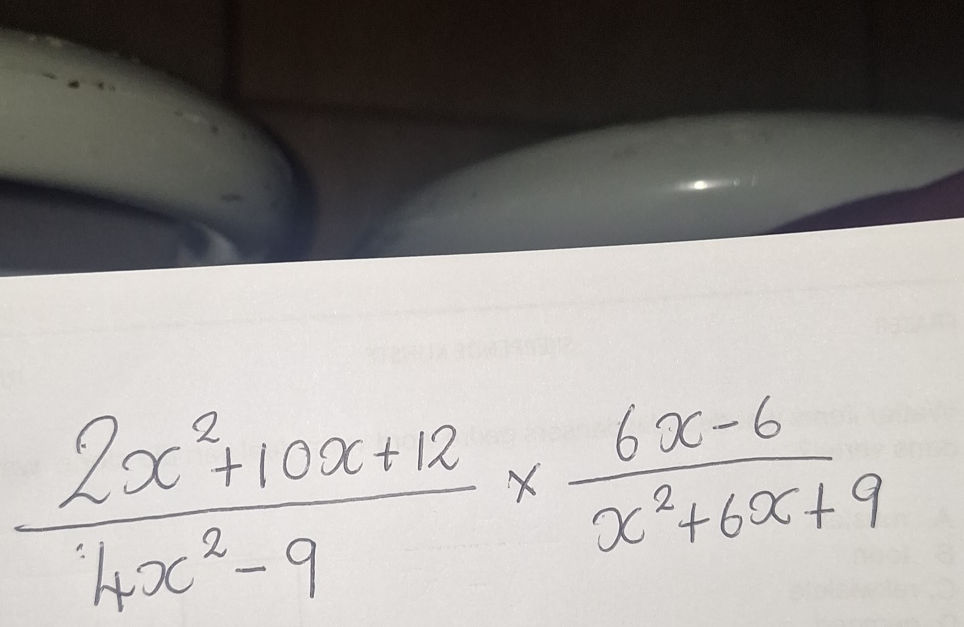 2x²+10x+12 / 4x²-9 × 6x-6 / x²+6x+9